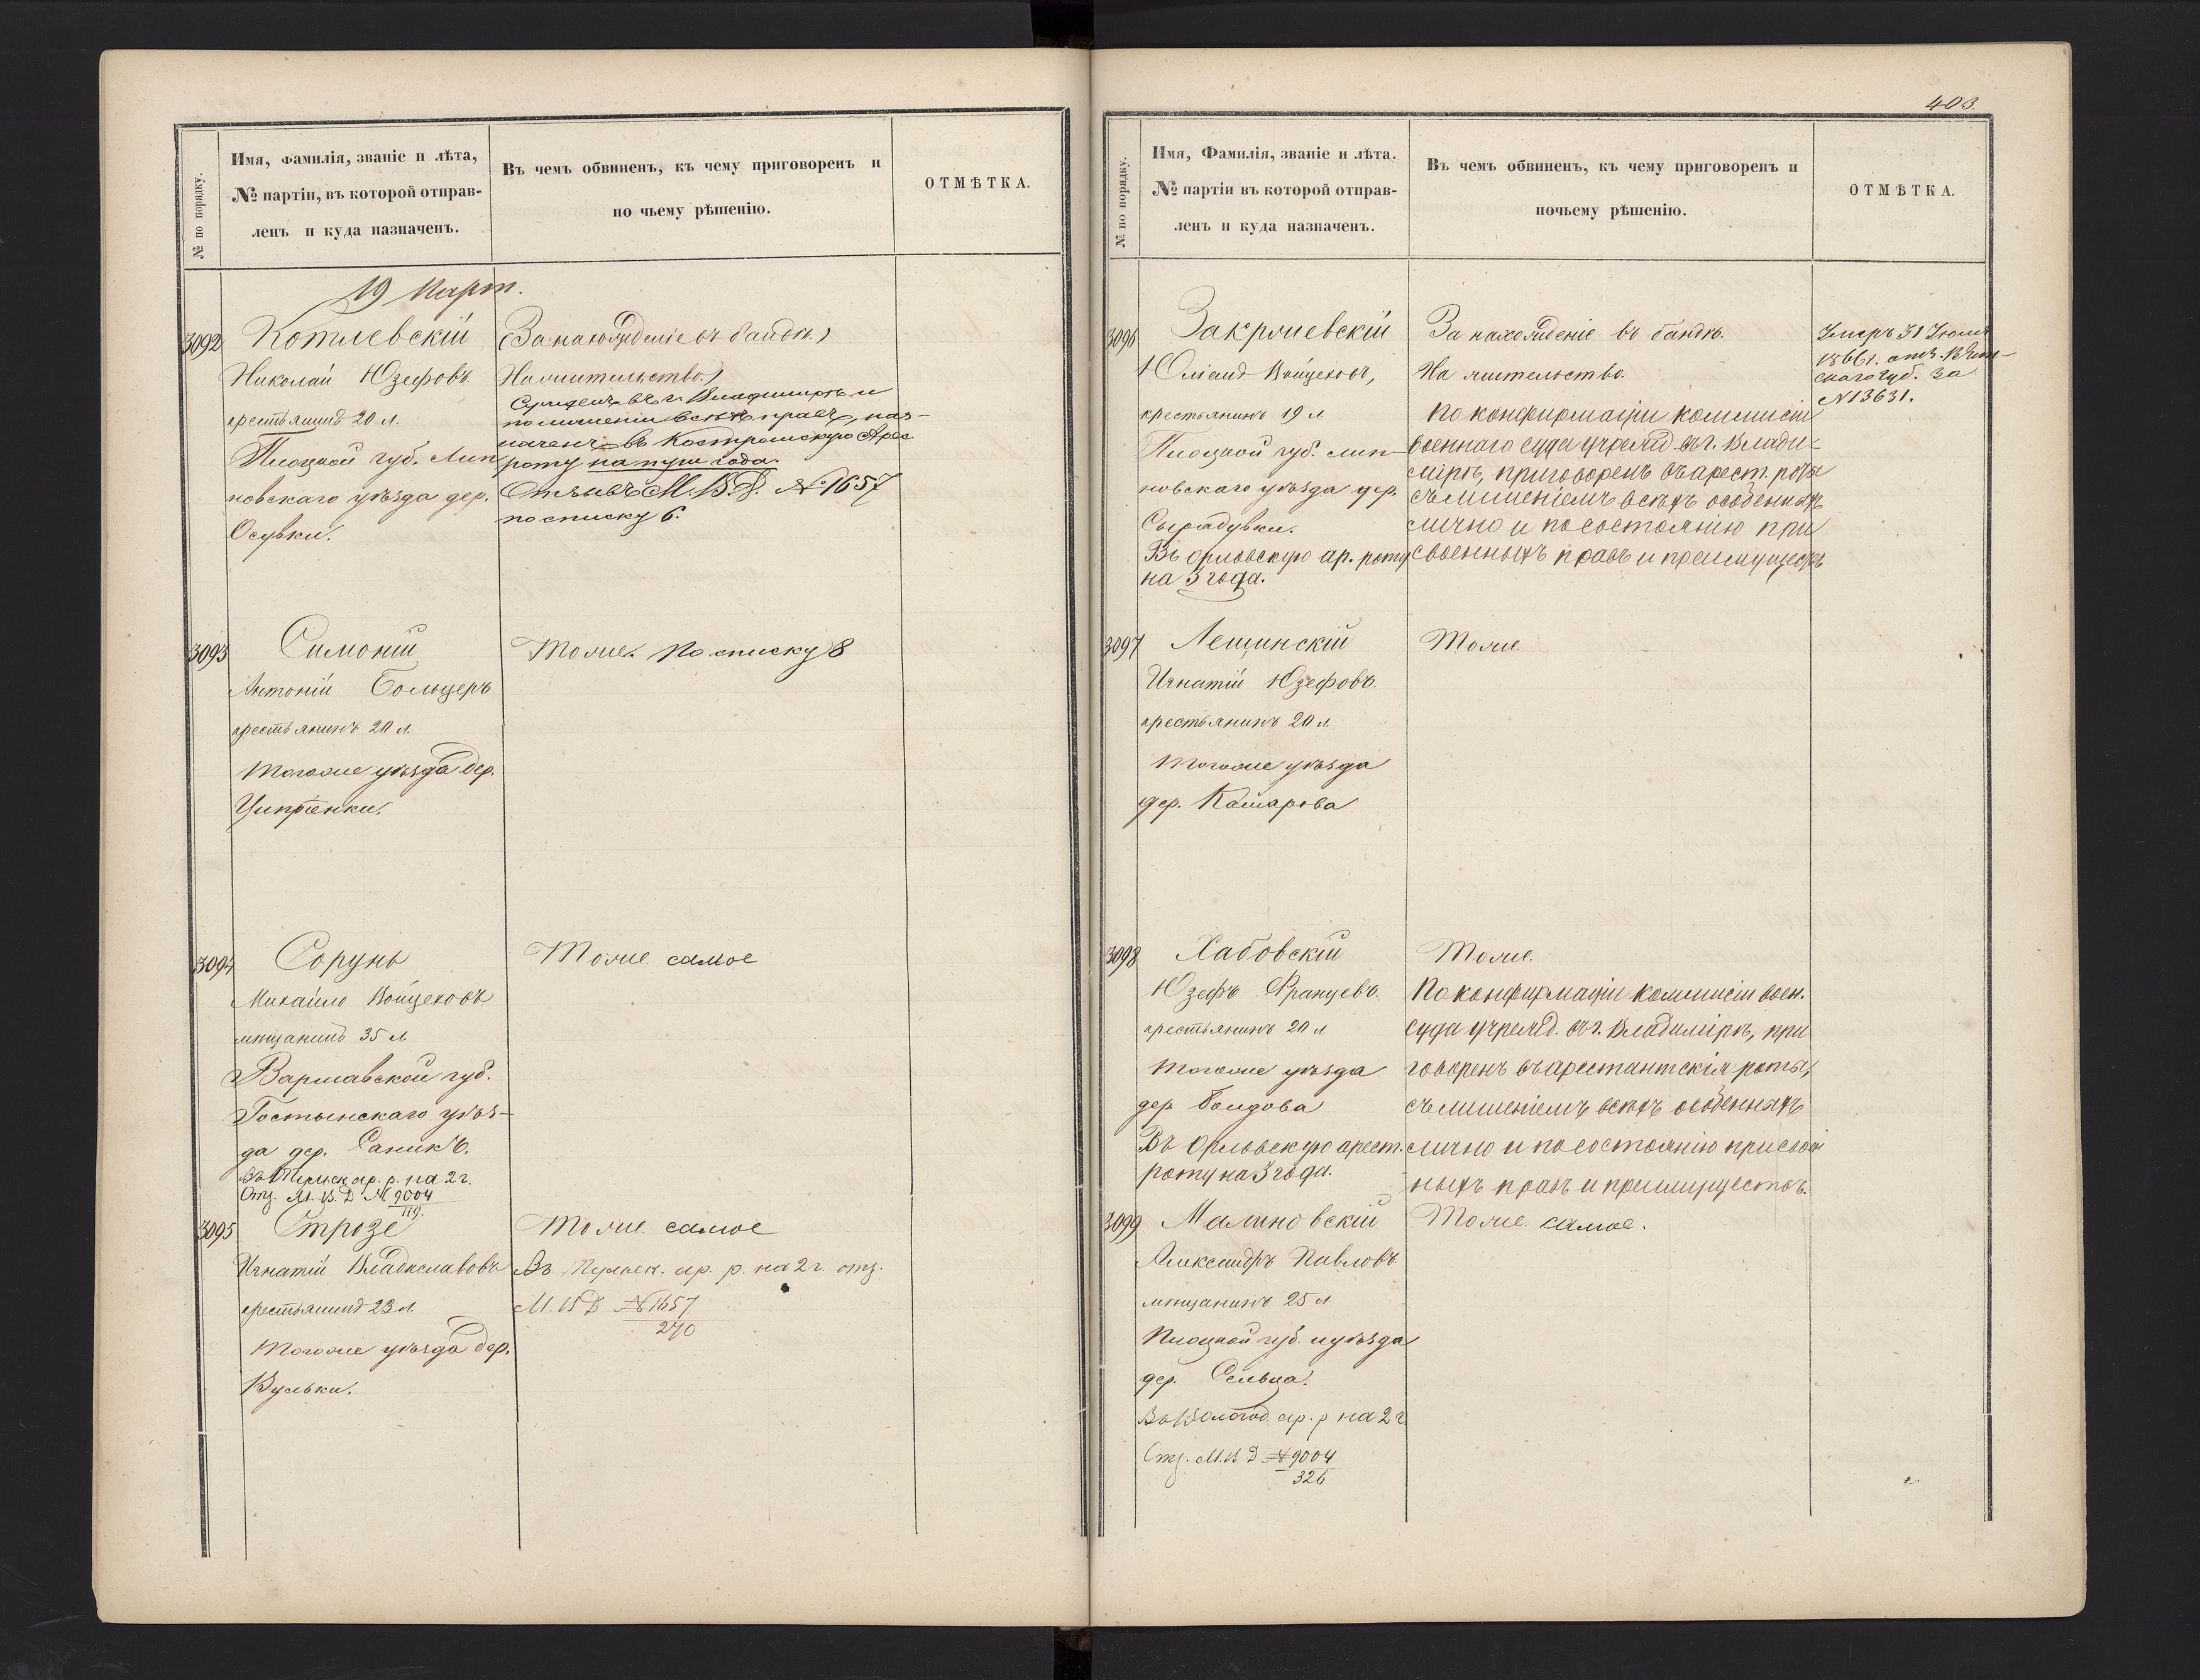 № по порядку.
Имя, фамилія, званіе и лѣта,
№ партіи, въ которой отправ-
ленъ и куда назначенъ.
Въ чемъ обвиненъ, къ чему приговоренъ и
по чьему рѣшенію.
ОТМѢТКА.
19 Март.
3092
Котлевскій
Николай Юзефовъ
крестьянинъ 20 л.
Плоцкой губ. Лип
новскаго уѣзда дер.
Осувки.
За нахожденіе въ бандѣ.
На жительство.
Сужденъ въ г. Владимирѣ и
по лишеніи всѣхъ правъ, наз-
наченъ въ Костромскую Арес
роту на три года.
Отзывъ М.В.Д. № 1657
по списку 6.
3093
Симоній
Антоній Больцеръ
крестьянинъ 20 л.
тогоже уѣзда дер.
Тоже. По списку 8
3094
Сорунь
Михайло Войцеховъ
мѣщанинъ 35 л
Варшавской губ.
Гостынскаго уѣз-
да дер. Саникъ.
ар. р. на 2 г.
Отз. М.В.Д № 9004
119.
Тоже самое
3095
Строзе
Игнатій Владиславовъ
крестьянинъ 23 л.
тогоже уѣзда дер.
Вульки.
Тоже самое
Въ Пермск. ар. р. на 2 г. отз.
М.В.Д № 1657
270
403.
№ по порядку.
Имя, Фамилія, званіе и лѣта.
№ партіи въ которой отправ-
ленъ и куда назначенъ.
Въ чемъ обвиненъ, къ чему приговоренъ и
почьему рѣшенію.
ОТМѢТКА.
3096
Закржевскій
Юліанъ Войцеховъ,
крестьянинъ 19 л
Плоцкой губ. Лип-
новскаго уѣзда дер.
Въ Орловскую ар. роту
на 3 года.
За нахожденіе въ бандѣ.
На жительство.
По конфирмаціи коммисіи
военнаго суда учрежд. въ г. Влади-
мірѣ, приговоренъ въ арест. роты
съ лишеніемъ всѣхъ особенныхъ
лично и по состоянію при
своенныхъ правъ и преимуществъ
Умеръ 31
1866 г. отз.
скаго губ. за
№ 13631.
3097
Лещинскій
Игнатій Юзефовъ.
крестьянинъ 20 л
тогоже уѣзда
дер.
Тоже
3098
Хабовскій
Юзефъ Францевъ.
крестьянинъ 20 л
тогоже уѣзда
дер
Въ Орловскую арест.
роту на 3 года.
Тоже.
По конфирмаціи коммисіи воен.
суда учрежд. въ г. Владимірѣ, при
говоренъ въ арестантскія роты,
съ лишеніемъ всѣхъ особенныхъ
лично и по состоянію присвоен
ныхъ правъ и преимуществъ.
3099
Малиновскій
Александръ Павловъ
мѣщанинъ 25 л
Плоцкой губ. и уѣзда
дер. Сельца.
Въ Вологод. ар. р на 2 г
Отз. М.В Д № 9004
326
Тоже самое.